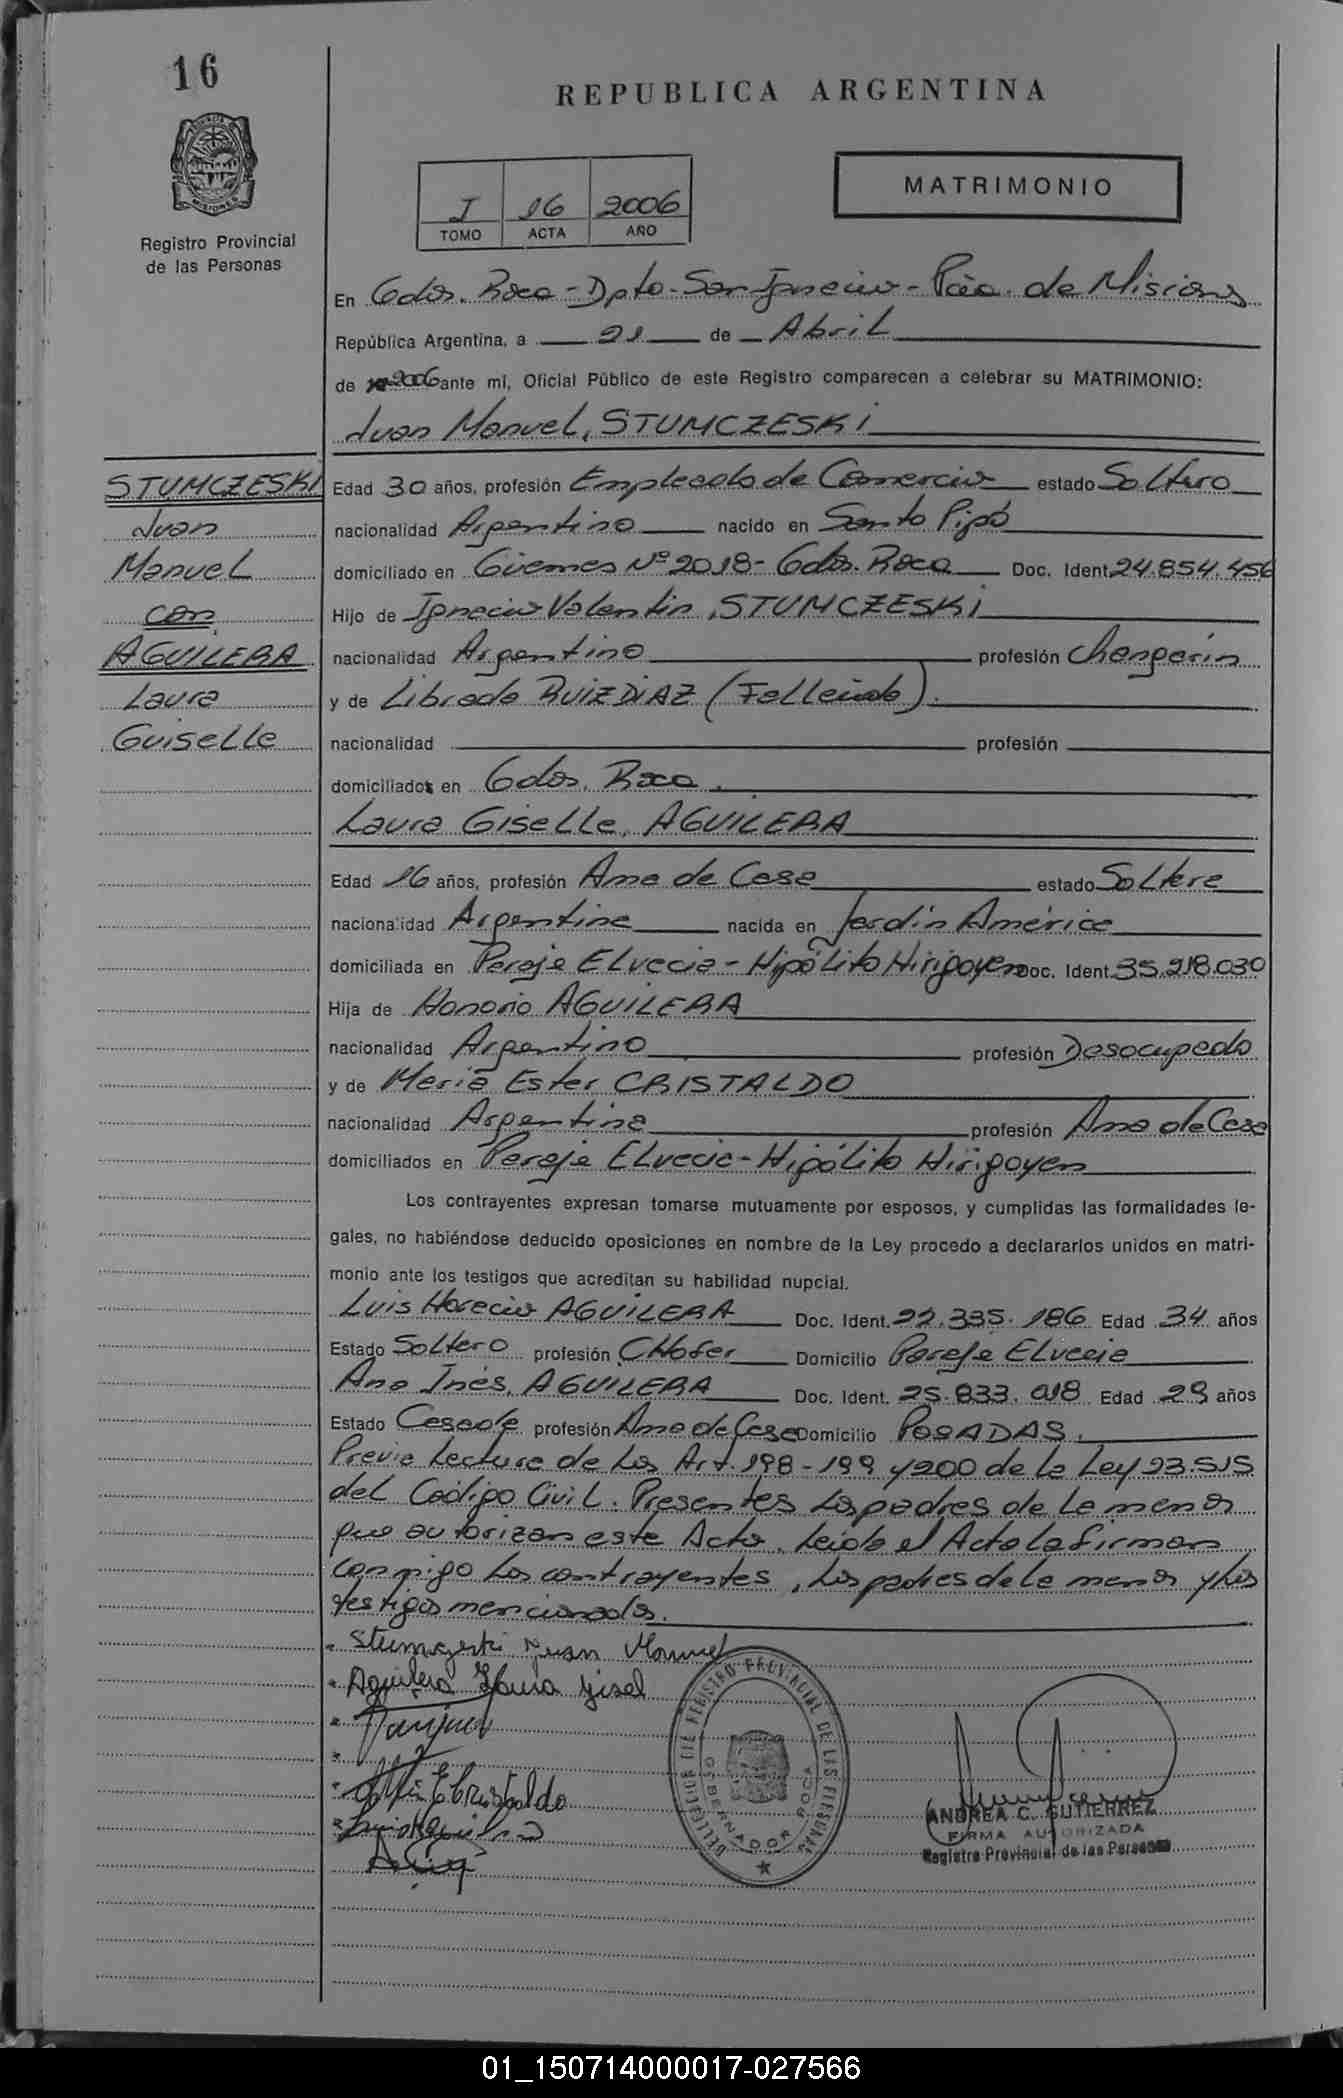 16
REPUBLICA ARGENTINA
MATRIMONIO
I 16 2006
TOMO ACTA AÑO
Registro Provincial
de las Personas
En Gdor. Roca - Dpto. San Ignacio - Pcia. de Misiones
República Argentina, a 21 de Abril
de 2006 ante mí, Oficial Público de este Registro comparecen a celebrar su MATRIMONIO:
Juan Manuel, STUMCZESKI
STUMCZESKI
Juan
Manuel
con
AGUILERA
Laura
Guiselle
Edad 30 años, profesión Empleado de Comercio estado Soltero
nacionalidad Argentino nacido en Santo Pipó
domiciliado en Güemes Nº 2018 - Gdor. Roca Doc. Ident. 24.854.456
Hijo de Ignacio Valentin, STUMCZESKI
nacionalidad Argentino profesión Changarín
y de Librada RUIZ DIAZ (Fallecida).
nacionalidad profesión
domiciliados en Gdor. Roca.
Laura Giselle, AGUILERA
Edad 16 años, profesión Ama de Casa estado Soltera
nacionalidad Argentina nacida en Jardín América
domiciliada en Paraje Elvecia - Hipólito Hirigoyen Doc. Ident. 35.218.030
Hija de Honorio AGUILERA
nacionalidad Argentino profesión Desocupado
y de María Ester CRISTALDO
nacionalidad Argentina profesión Ama de Casa
domiciliados en Paraje Elvecia - Hipólito Hirigoyen
Los contrayentes expresan tomarse mutuamente por esposos, y cumplidas las formalidades le-
gales, no habiéndose deducido oposiciones en nombre de la Ley procedo a declararlos unidos en matri-
monio ante los testigos que acreditan su habilidad nupcial.
Luis Horacio AGUILERA Doc. Ident. 22.335.186 Edad 34 años
Estado Soltero profesión Chofer Domicilio Paraje Elvecia
Ana Inés, AGUILERA Doc. Ident. 25.833.018 Edad 29 años
Estado Casada profesión Ama de Casa Domicilio POSADAS.
Previa Lectura de Los Art. 198 - 199 y 200 de la Ley 23.515
del Código Civil. Presentes Los padres de La menor
que autorizan este Acto. Leída el Acta La firman
conmigo Los contrayentes, Los padres de la menor y Los
testigos mencionados.
Stumczeski Juan Manuel
Aguilera Laura Gisel
DELEGACION DE REGISTRO PROVINCIAL DE LAS PERSONAS
GOBERNADOR ROCA
ANDREA C. GUTIERREZ
FIRMA AUTORIZADA
Registro Provincial de las Personas
01_150714000017-027566